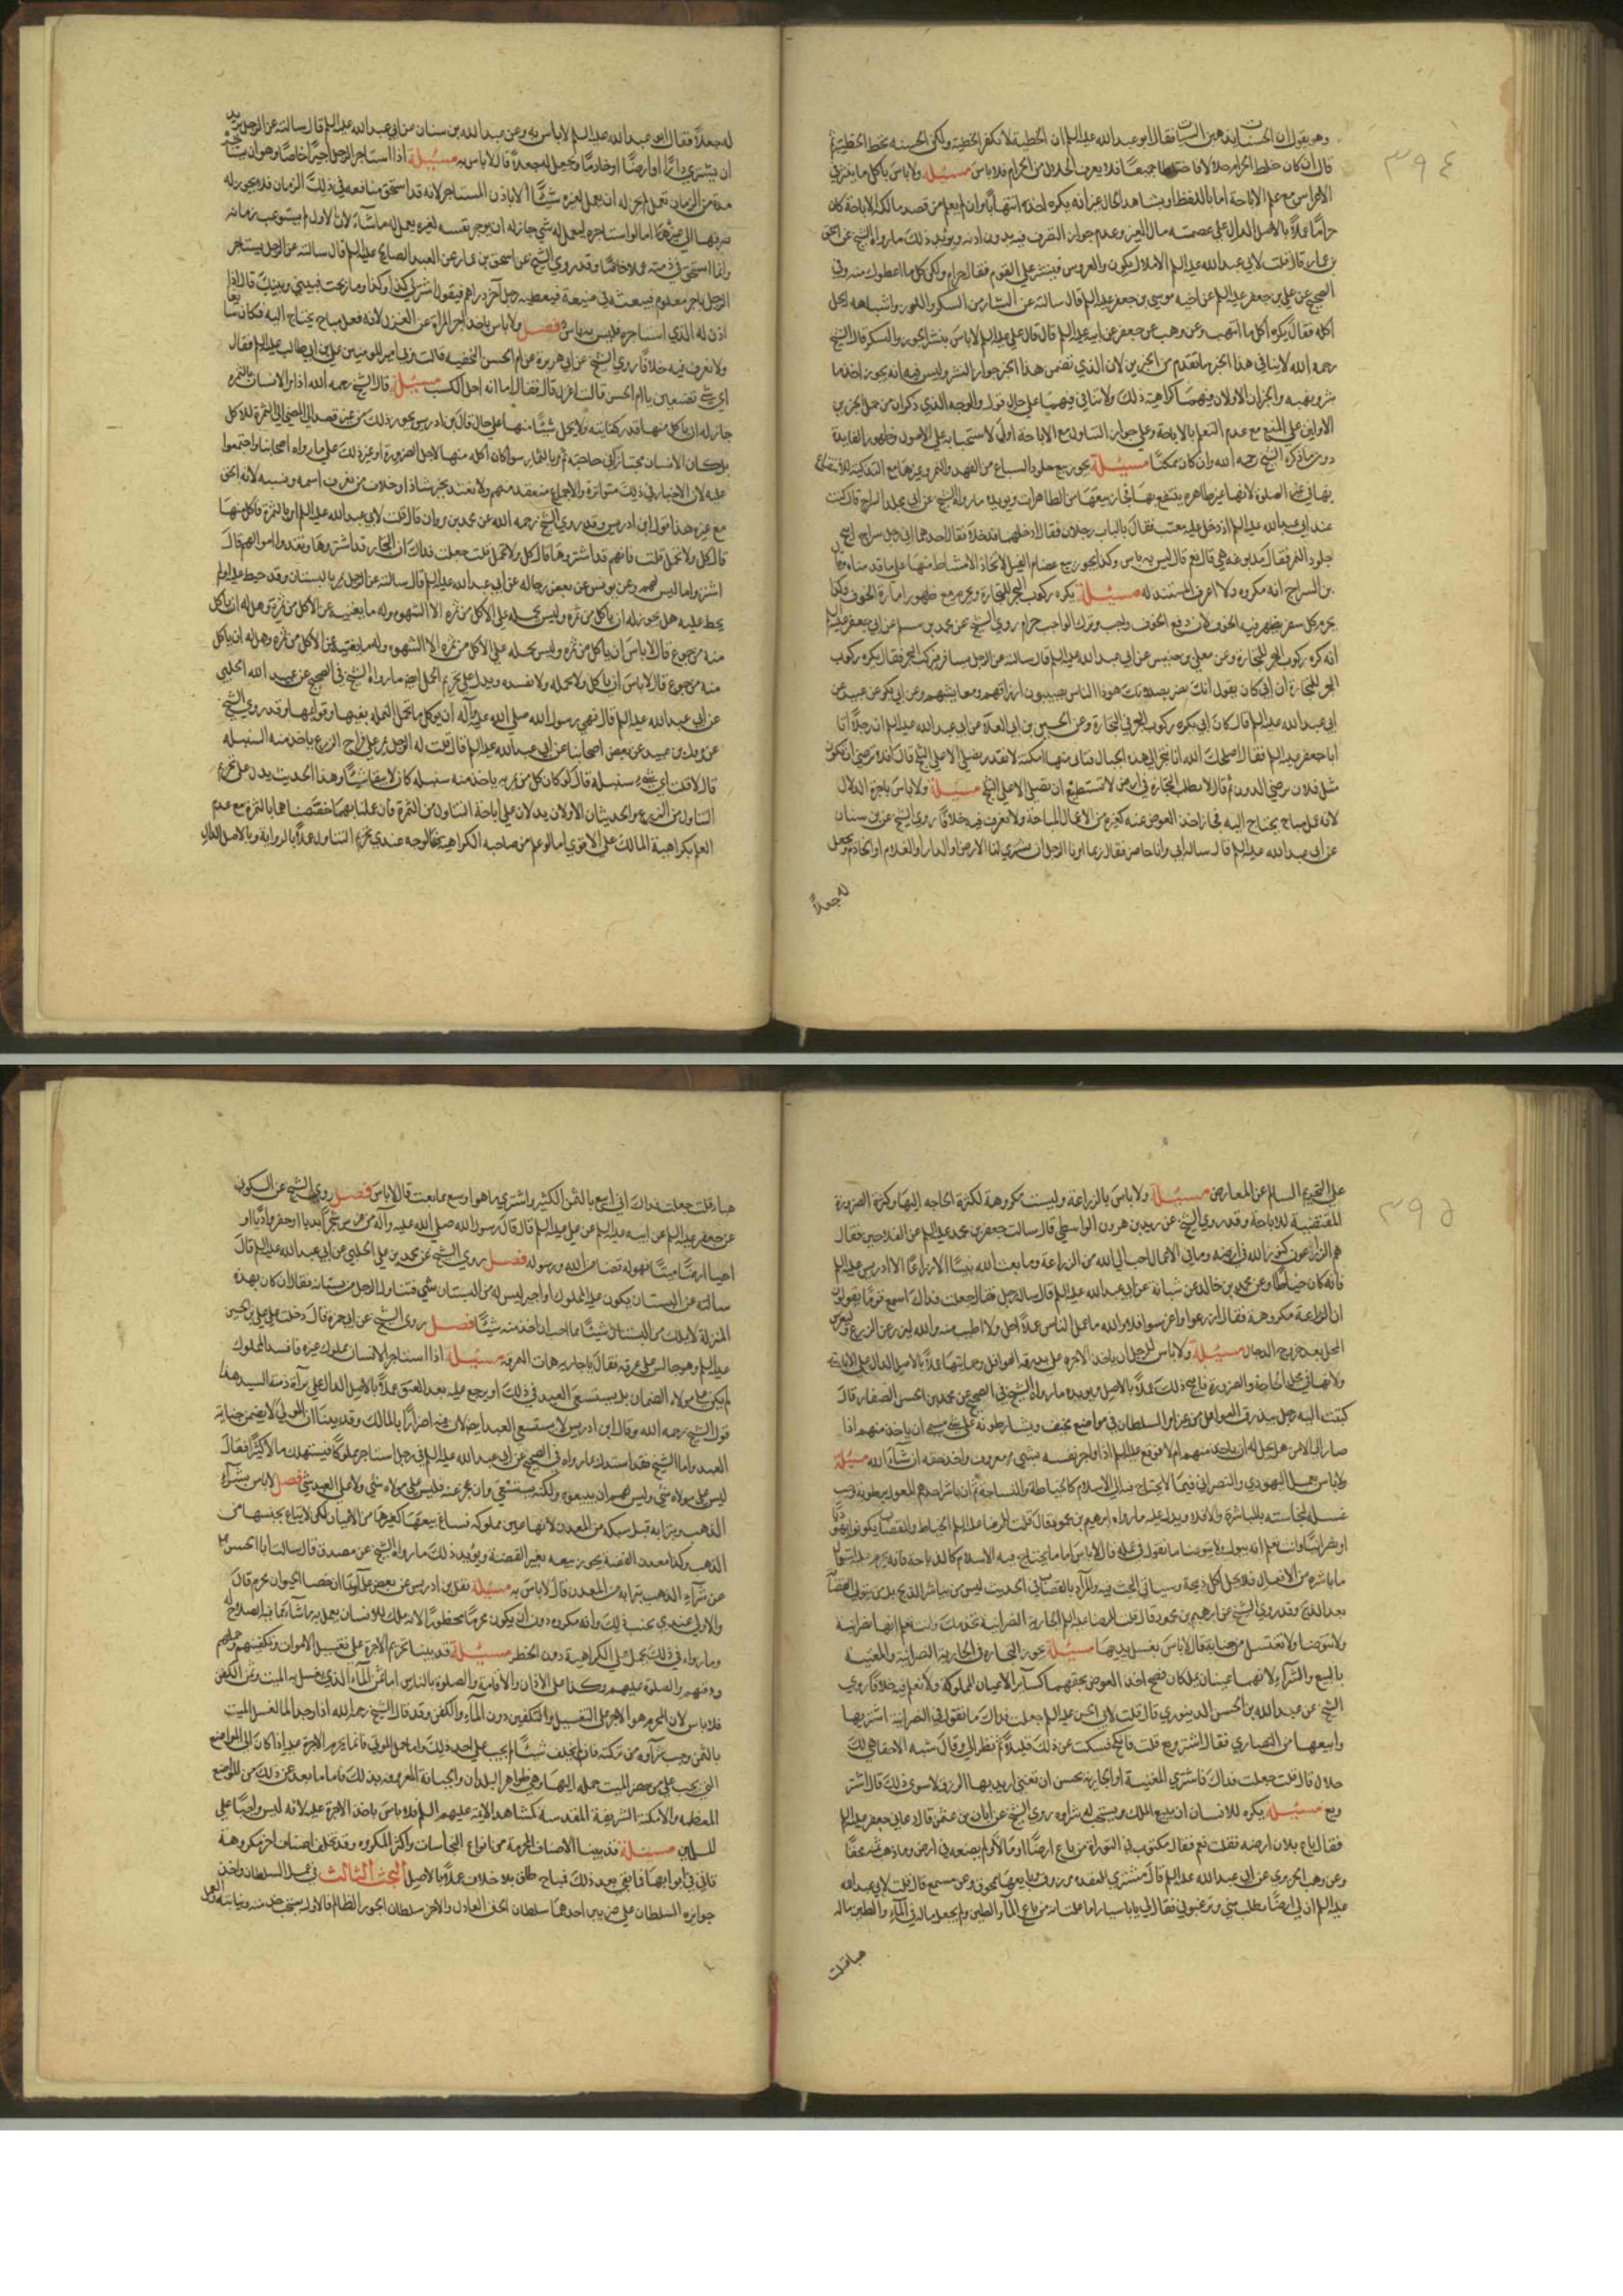 ٣٩٤
وهو يقول ان الحسنات يذهبن السيئات فقال ابو عبدالله عليه السلم ان الخطيئة لا تكفر الخطيئة ولكن الحسنة تحط الخطيئة ثم
قال ان كان خلط الحرام حلالا فاختلطا جميعًا فلا يعرف الحلال من الحرام فلا باس مسئلة ولا باس باكل ما ينثر في
الاعراس مع علم الاباحة اما باللفظ او بشاهد الحال غير انه يكره اخذه انتهابًا وان لم يعلم من قصد مالكه الاباحة كان
حرامًا عملًا بالاصل الدال على عصمة مال الغير وعدم جواز التصرف فيه بدون اذنه ويؤيد ذلك ما رواه الشيخ عن اسحق
بن عمار قال قلت لابي عبدالله عليه السلم الاملاك يكون والعروس فينثر على القوم فقال حرام ولكن كل ما اعطوك منه وفي
الصحيح عن علي بن جعفر عليه السلم عن اخيه موسى بن جعفر عليه السلم قال سالته عن النثار من السكر واللوز واشباهه ايحل
اكله فقال يكره اكل ما انتهب وعن وهب عن جعفر عن ابيه عليه السلم قال قال علي عليه السلم لا باس بنثر الجوز والسكر قال الشيخ
رحمه الله لا ينافي هذا الخبر ما تقدم من الخبرين لان الذي تضمن هذا الخبر جواز النثر وليس فيه انه يجوز اخذ ما
نثر ونهبه والخبران الاولان فيهما كراهية ذلك ولا تنافي فيهما على حال قوله والوجه الذي ذكر ان من حمل الخبرين
الاولين على المنع مع عدم العلم بالاباحة وعلى جواز التناول مع الاباحة اولى لاستحبابه على الاصول وظهور الفايدة
دون ما ذكره الشيخ رحمه الله وان كان ممكنًا مسئلة يجوز بيع جلود السباع من الفهد والنمر وغيرها مع التذكية للانتفاع
بها في غير الصلوة لانها عين طاهرة ينتفع بها فجاز بيعها كسائر الطاهرات ويؤيده ما رواه الشيخ عن ابي مخلد السراج قال كنت
عند ابي عبدالله عليه السلم اذ دخل عليه معتب فقال بالباب رجلان فقال ادخلهما فدخلا فقال احدهما اني رجل سراج ابيع
جلود النمر فقال مدبوغة هي قال نعم قال ليس به باس وكذا يجوز بيع عظام الفيل لاتخاذ الامشاط منها على ما قدمناه وقال
بن السراج انه مكروه ولا اعرف المستند له مسئلة يكره ركوب البحر للتجارة ويحرم مع ظهور امارة الخوف وكذا
يحرم كل سفر يظهر فيه الخوف لان دفع الخوف واجب وترك الواجب حرام روى الشيخ عن محمد بن مسلم عن ابي جعفر عليه السلم
انه كره ركوب البحر للتجارة وعن معلى بن خنيس عن ابي عبدالله عليه السلم قال سالته عن الرجل يسافر فيركب البحر فقال يكره ركوب
البحر للتجارة ان ابي كان يقول انك تضر بصلاتك هو ذا الناس يصيبون ارزاقهم ومعايشهم وعن ابي بكر عن عبيد عن
ابي عبدالله عليه السلم قال كان ابي يكره ركوب البحر في التجارة وعن الحسين بن ابي العلاء عن ابي عبدالله عليه السلم ان رجلا اتا
ابا جعفر عليه السلم فقال اصلحك الله انا نتجر الى هذه الجبال فناتي منها امكنة لا نقدر نصلي الا على الثلج قال افلا ترضى ان تكون
مثل فلان يرضى بالدون ثم قال لا تطلب التجارة في ارض لا تستطيع ان تصلي الا على الثلج مسئلة ولا باس باجرة الدلال
لانه عمل مباح يحتاج اليه فجاز اخذ العوض عنه كغيره من الاعمال المباحة ولا نعرف فيه خلافًا روى الشيخ عن بن سنان
عن ابي عبدالله عليه السلم قال ساله ابي وانا حاضر فقال ربما امرنا الرجل ان يشتري لنا الارض والدار والغلام او الخادم ونجعل
له جعلاً
له جعلاً فقال ابو عبدالله عليه السلم لا باس به وعن عبدالله بن سنان عن ابي عبدالله عليه السلم قال سالته عن الرجل يريد
ان يشتري دارًا او ارضًا او خادمًا ويجعل له جعلاً قال لا باس به مسئلة اذا استاجر الرجل اجيرًا خاصًا وهو ان يستاجره
مدة من الزمان تعمل لم يجز له ان يعمل لغيره شيئًا الا باذن المستاجر لانه قد استحق منافعه في ذلك الزمان فلا يجوز له
صرفها الى غيره اما لو استاجره ليعمل له شي جاز له ان يوجر نفسه لغيره يعمل له ما شاء لان الاول لم يستوعب زمانه
وانما استحق في ذمته عملا خاصًا وقد روى الشيخ عن اسحق بن عمار عن العبد الصالح عليه السلم قال سالته عن الرجل يستاجر
الرجل باجر معلوم فيبعثه في ضيعة فيعطيه رجل آخر دراهم فيقول اشتر لي كذا وكذا وما ربحت فبيني وبينك قال اذا
اذن له الذي استاجره فليس به باس فصل ولا باس باخذ اجر المراة عن الغزل لانه فعل مباح يحتاج اليه فكان سائغًا
ولا نعرف فيه خلافًا روى الشيخ عن ابي هريرة عن ام الحسن النخعيه قالت مر بي امير المومنين علي بن ابي طالب عليه السلم فقال
اي شي تصنعين يا ام الحسن قالت اغزل قال فقال اما انه احل الكسب مسئلة قال الشيخ رحمه الله اذا مر الانسان بالثمرة
جاز له ان ياكل منها قدر كفايته ولا يحمل شيئًا منها على حال قال بن ادريس يجوز ذلك من غير قصد الى المضي الى الثمرة للاكل
بل كان الانسان مجتازًا في حاجته ثم مر بالثمار سوا كان اكله منها لاجل الضرورة او غير ذلك على ما رواه اصحابنا واجتمعوا
عليه لان الاخبار في ذلك متواترة والاجماع منعقد منهم ولا يعتد بخبر شاذ او خلاف من يعرف اسمه ونسبه لان الحق
مع غيره هذا قول ابن ادريس وقد روى الشيخ رحمه الله عن محمد بن مروان قال قلت لابي عبدالله عليه السلم امر بالثمرة فاكل منها
قال كل ولا تحمل قلت فانهم قد اشتروها قال كل ولا تحمل قلت جعلت فداك ان التجار قد اشتروها ونقدوا اموالهم قال
اشتروا ما ليس لهم وعن يونس عن بعض رجاله عن ابي عبدالله عليه السلم قال سالته عن الرجل يمر بالبستان وقد حيط عليه او لم
يحط عليه هل يجوز له ان ياكل من ثمره وليس يحمله على الاكل من ثمره الا الشهوه وله ما يغنيه عن الاكل من ثمره وهل له ان ياكل
منه من جوع قال لا باس ان ياكل من ثمره وليس يحمله على الاكل من ثمره الا الشهوه وله ما يغنيه عن الاكل من ثمره وهل له ان ياكل
منه من جوع قال لا باس ان ياكل ولا يحمله ولا يفسده ويدل على تحريم الحمل ايضا ما رواه الشيخ في الصحيح عن عبيد الله الحلبي
عن ابي عبدالله عليه السلم قال نهى رسول الله صلى الله عليه وآله ان يوكل ما تحمل النملة بفيها وقوائمها وقد روى الشيخ
عن مروك بن عبيد عن بعض اصحابنا عن ابي عبدالله عليه السلم قال قلت له الرجل يمر على قراح الزرع ياخذ منه السنبلة
قال لا قلت اي شيء سنبلة قال لو كان كل من يمر به ياخذ منه سنبلة كان لا يبقى شيئًا وهذا الحديث يدل على تحريم
التناول من الزرع والحديثان الاولان يدلان على اباحة التناول من الثمرة فان علمنا بهما خصصناهما بالثمرة مع عدم
العلم بكراهية المالك على الاقوى اما لو علم من صاحبه الكراهية فالوجه عندي تحريم التناول عملًا بالرواية وبالاصل الدال
٣٩٥
على التحريم السالم عن المعارض مسئلة ولا باس بالزراعة وليست مكروهة لكثرة الحاجه اليها وكثرة الضرورة
المقتضية للاباحة وقد روى الشيخ عن يزيد بن هرون الواسطي قال سالت جعفر بن محمد عليه السلم عن الفلاحين فقال
هم الزراعون كنوز الله في ارضه وما في الاعمال احب الى الله من الزراعة وما بعث الله نبيًا الا زراعًا الا ادريس عليه السلم
فانه كان خياطًا وعن محمد بن خالد عن شبانة عن ابي عبدالله عليه السلم قال ساله رجل فقال جعلت فداك اسمع قومًا يقولون
ان الزراعة مكروهة فقال ازرعوا واغرسوا فلا والله ما عمل الناس عملًا احل ولا اطيب منه والله ليزرعن الزرع وليغرسن
النخل بعد خروج الدجال مسئلة ولا باس للرجل ان ياخذ الاجرة على بدرقة القوافل وحمايتها عملًا بالاصل الدال على الاباحة
ولانها في محل الحاجة والضرورة فابيح ذلك عملًا بالاصل ويؤيده ما رواه الشيخ في الصحيح عن محمد بن الحسن الصفار قال
كتبت اليه رجل يبدرق القوافل من غير امر السلطان في مواضع مخيفه ويشارطونه على شي مسمى ان ياخذ منهم اذا
صار الى الامن هل يحل له ان ياخذ منهم ام لا فوقع عليه السلم اذا واجر نفسه بشي معروف واخذ حقه ان شاء الله مسئلة
ولا باس بعمل اليهودي والنصراني فيما لا يحتاج فيه الى الاسلام كالخياطة والنساجة
غسله لنجاسته بالمباشرة والا فلا ويدل عليه ما رواه ابرهيم بن محمود قال قلت للرضا عليه السلم الخياط والقصار يكون يهوديًا
او نصرانيًا وانت تعلم انه يبول ولا يتوضا ما تقول في عمله قال لا باس
بعد الذبح وقد روى الشيخ عن ابرهيم بن محمود قال قلت للرضا عليه السلم الجارية النصرانية تخدمك وانت تعلم انها نصرانية
ولا تتوضا ولا تغتسل من جنابة قال لا باس تغسل يديها مسئلة يجوز التجارة في الجارية النصرانية والمغنية
بالبيع والشراء لانهما عينان يملكان فصح اخذ العوض بحقهما كسائر الاعيان المملوكة ولا نعلم فيه خلافًا روى
الشيخ عن عبدالله بن الحسن الدينوري قال قلت لابي الحسن عليه السلم جعلت فداك ما تقول في النصرانية اشتريها
وابيعها من النصارى فقال اشتر وبع قلت فانكح فسكت عن ذلك قليلًا ثم نظر الي وقال شبه الاخفاء هي لك
حلال قال قلت جعلت فداك فاشتري المغنية او الجارية تحسن ان تغني اريد بها الرزق لا سوى ذلك قال اشتر
وبع مسئلة يكره للانسان ان يبيع الملك ويستحب له شراوه روى الشيخ عن ابان بن عثمن قال دعاني جعفر عليه السلم
فقال باع فلان ارضه فقلت نعم فقال مكتوب في التوراة من باع ارضًا او ماء ولم يضعه في ارض وماء ذهب ثمنه محقًا
وعن وهب الحريري عن ابي عبدالله عليه السلم قال مشتري العقدة مرزوق وبايعها ممحوق وعن مسمع قال قلت لابي عبدالله
عليه السلم ان لي ارضًا تطلب مني ويرغبوني فقال لي يابا سيار اما علمت انه من باع الماء والطين ولم يجعل ماله في الماء والطين ذهب ماله
هباء قلت
هباء قلت جعلت فداك اني ابيع بالثمن الكثير واشتري ما هو اوسع مما بعت قال لا باس فصل روى الشيخ عن السكوني
عن جعفر عليه السلم عن ابيه عليه السلم عن علي عليه السلم قال قال رسول الله صلى الله عليه وآله من غرس شجرًا بديا او حفر واديًا او
احيا ارضًا ميتًا فهو له قضا من الله ورسوله فصل روى الشيخ عن محمد بن علي الحلبي عن ابي عبدالله عليه السلم قال
سالته عن البستان يكون عليه المملوك او اجير ليس له من البستان شي فتناول الرجل من بستانه فقال ان كان بهذه
المنزلة لا يملك من البستان شيئًا ما احب ان اخذ منه شيئًا فصل روى الشيخ عن ابي حمزة قال دخلت على علي بن الحسين
عليه السلم وهو جالس على غرفه فقال يا جاريه هات الغرفة مسئلة اذا استاجر الانسان مملوك غيره فافسد المملوك
لم يكن على مولاه الضمان بل يستسعى العبد في ذلك
قول الشيخ رحمه الله وقال ابن ادريس لا يستسعى العبد
العبد واما الشيخ فقد استدل بما رواه في الصحيح عن ابي عبدالله عليه السلم في رجل استاجر مملوكًا فيستهلك مالًا كثيرًا فقال
ليس على مولاه شي وليس لهم ان يبيعوه ولكنه يستسعى وان عجز عنه فليس على مولاه شي ولا على العبد شي فصل لا باس بشراء
الذهب وترابه قبل سبكه من المعدن لانها عين مملوكه فساغ بيعها كغيرها من الاعيان لكن لا يباع بجنسها من
الذهب وكذا معدن الفضة يجوز بيعه بغير الفضة ويؤيد ذلك ما رواه الشيخ عن مصدق قال سالت ابا الحسن
عن شراء الذهب بترابه من المعدن قال لا باس به مسئلة نقل بن ادريس عن بعض علمائنا ان خصا الحيوان محرم قال
والاولى عندي تجنب ذلك وانه مكروه دون ان يكون محرمًا محظورًا لانه ملك للانسان يعمل به ما شاء مما فيه الصلاح له
وما رواه في ذلك يحمل على الكراهية دون الحظر مسئلة قد بينا تحريم الاجرة على تغسيل الاموات وتكفينهم وحملهم
ودفنهم والصلوة عليهم وكذا على الاذان والاقامة والصلوة بالناس اما ثمن الماء الذي يغسل به الميت وثمن الكفن
فلا باس لان المحرم هو الاجر على التغسيل والتكفين دون الماء والكفن وقد قال الشيخ رحمه الله اذا وجد الما لغسل الميت
بالثمن وجب شراوه من تركته فان لم يخلف شيئًا لم يجب على احد ذلك واما حمل الموتى فانما يحرم الاجرة عليه اذا كان الى المواضع
التي يجب على من حضر الميت حمله اليها وهي ظواهر البلدان والجبانة المعروفة بذلك فاما ما بعد عن ذلك من المواضع
المعظمة والامكنة الشريفة المقدسة كمشاهد الائمة عليهم السلم فلا باس باخذ الاجرة عليه لانه ليس واجبًا على
المسلمين مسئلة قد بينا الاصناف المحرمة من انواع التجاسات واكثر المكروه وقد تخلف اصناف اخر مكروهة
تاتي في ابوابها فما بقي بعد ذلك فمباح طلق بلا خلاف عملًا بالاصل البحث الثالث في عمل السلطان واخذ
جوايزه السلطان على ضربين احدهما سلطان الحق العادل والاخر سلطان الجور الظالم فالاول يستحب خدمته ومبايعته